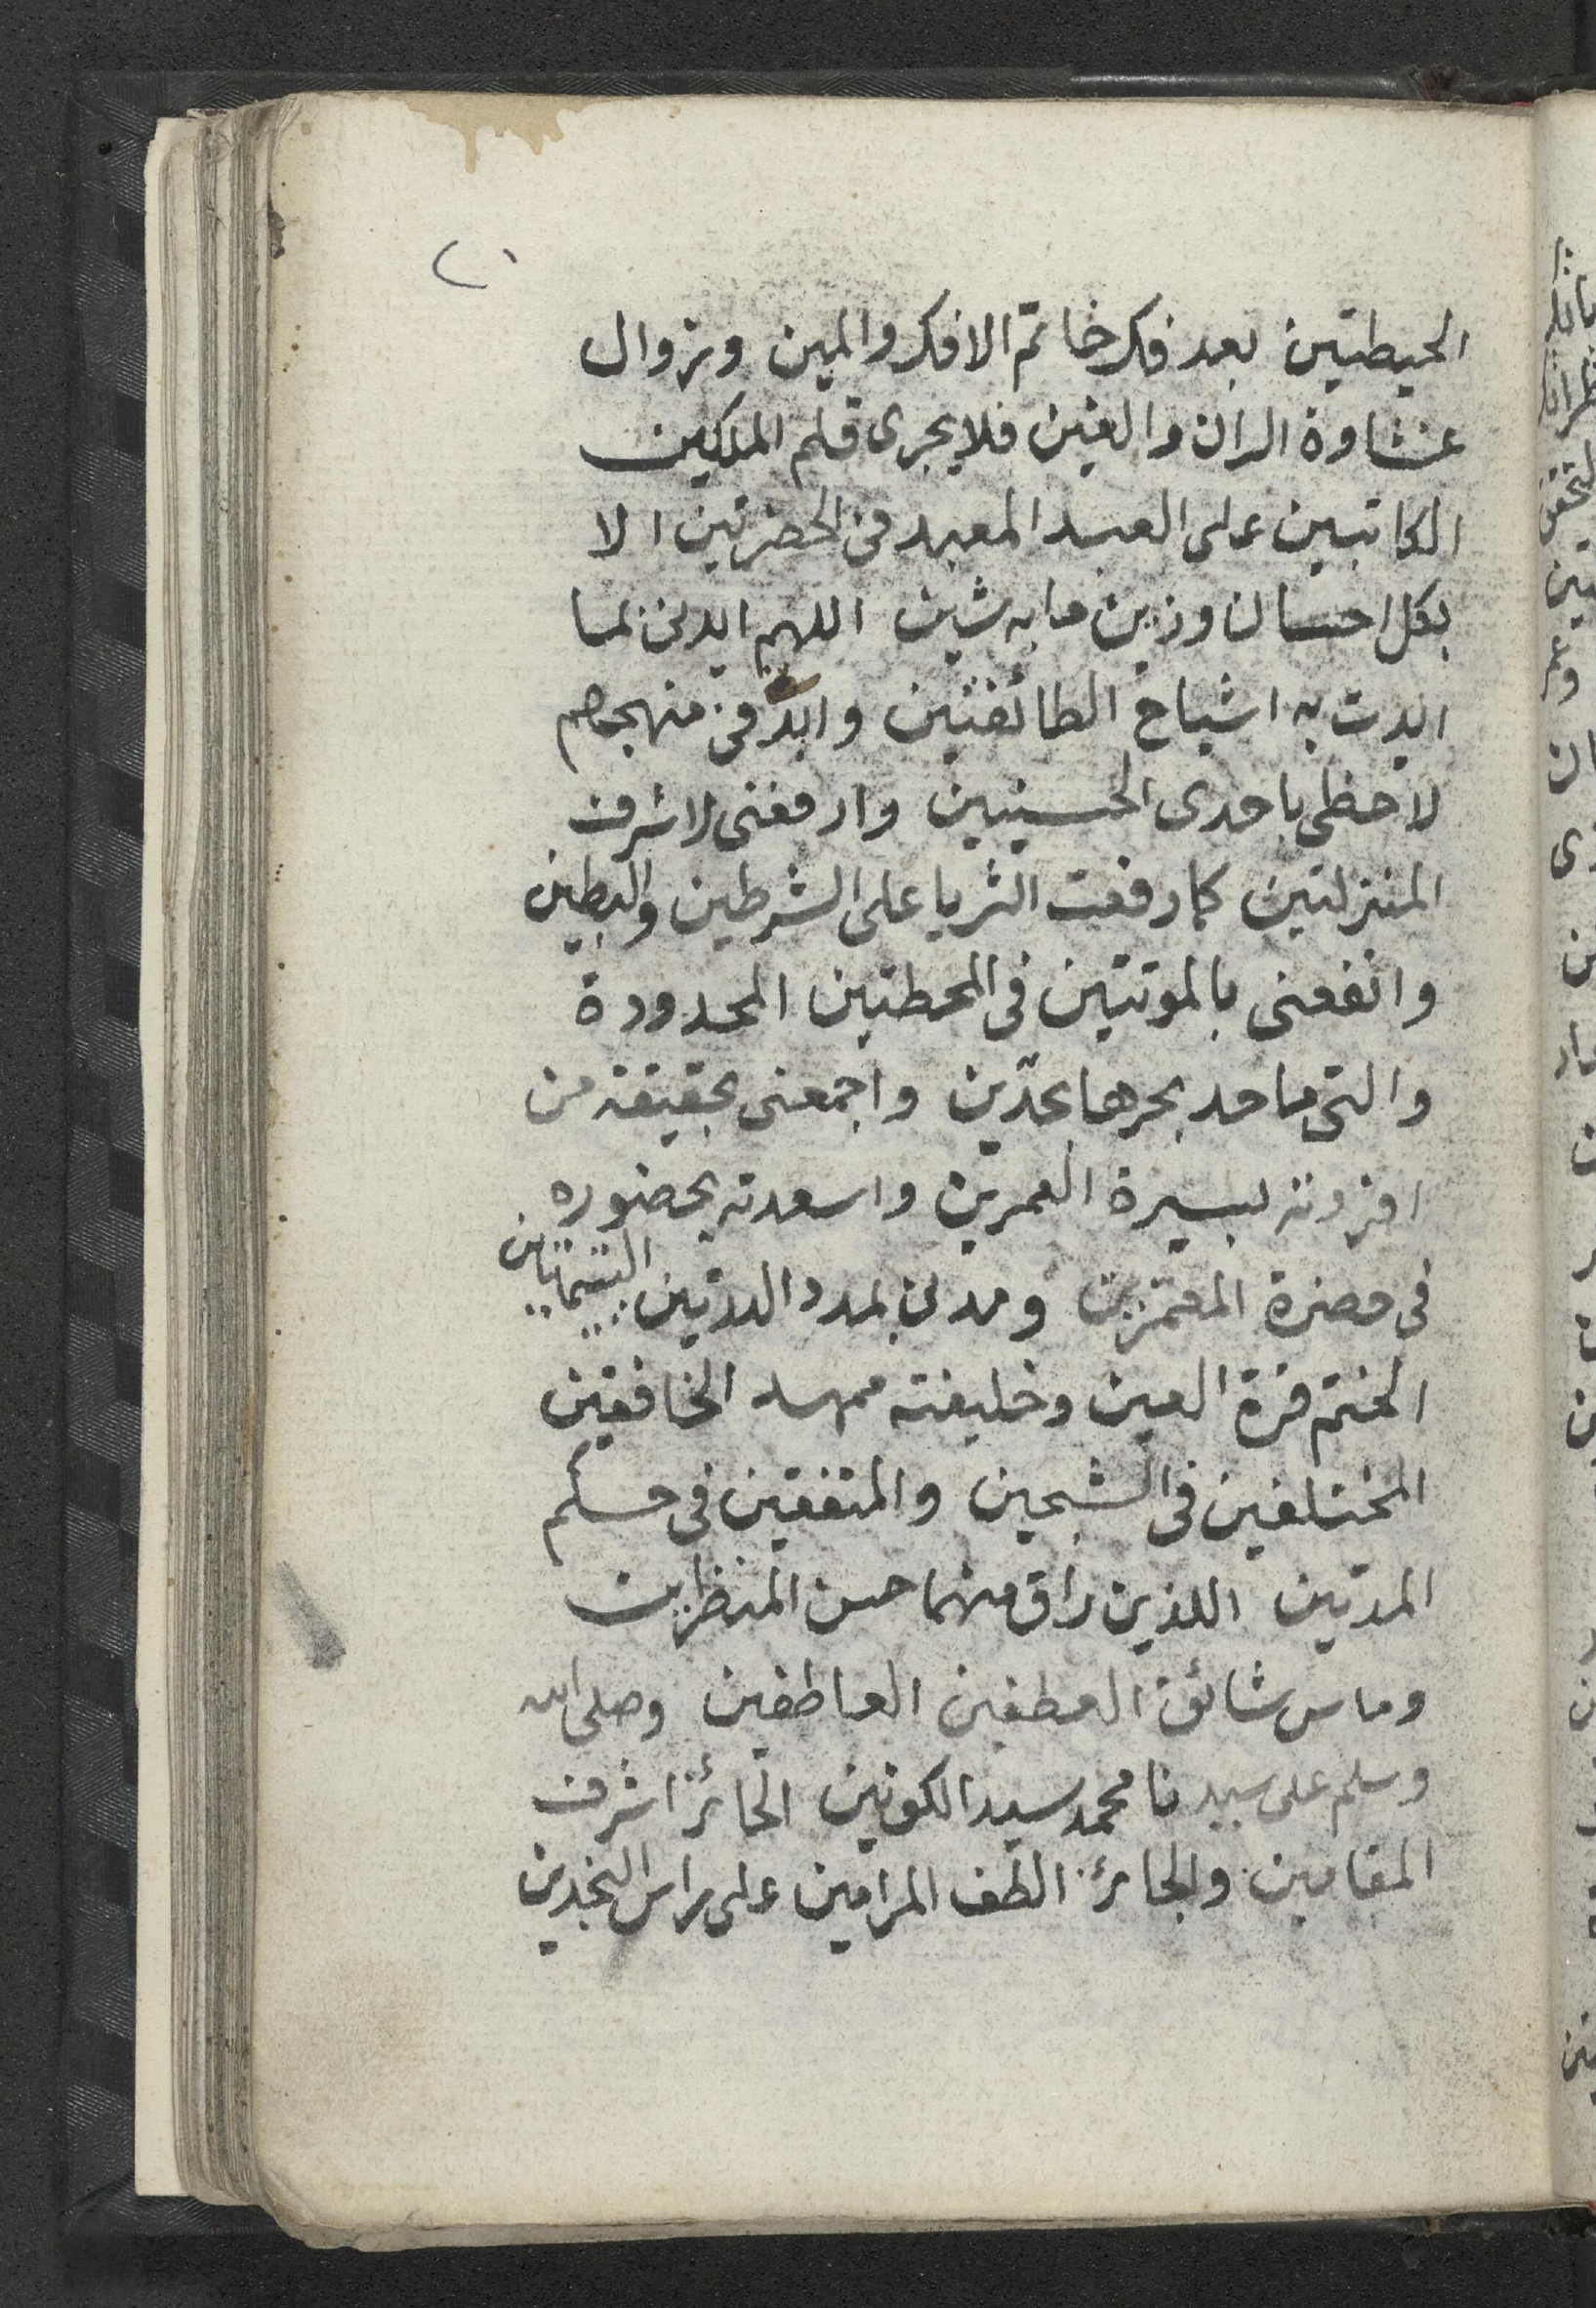 الحيطتين بعد فك خاتم الافك والمين وزوال
غشاوة الران والغين فلا يجرى قلم الملكين
الكاتبين على العبد المعبد فى الحضرتين الا
بكل احسان وزين ما به شين اللهم ايدنى بما
ايدت به اشباح الطائفتين وابد فى منهجهم
لاحظى باحدى الحسنيين وارفعنى لاشرف
المنزلتين كما رفعت الثريا على الشرطين والبطين
وانفعنى بالموتتين فى المحطتين المحدودة
والتى ما حد بحرها بحدين واجمعنى بحقيقة من
افردته بسيرة العمرين واسعدته بحضوره
فى حضرة المعتمرين ومدنى بمدد الدرتين اليتيمتين
الختم قرة العين وخليفته ممهد الخافقين
المختلفين فى الشبحين والمتفقين فى حكم
المدتين اللذين راق منهما حسن المنظرين
وماس شائق العطفين العاطفين وصلى الله
وسلم على سيدنا محمد سيد الكونين الحائز اشرف
المقامين والجائز الطف المرامين على راس النجدين